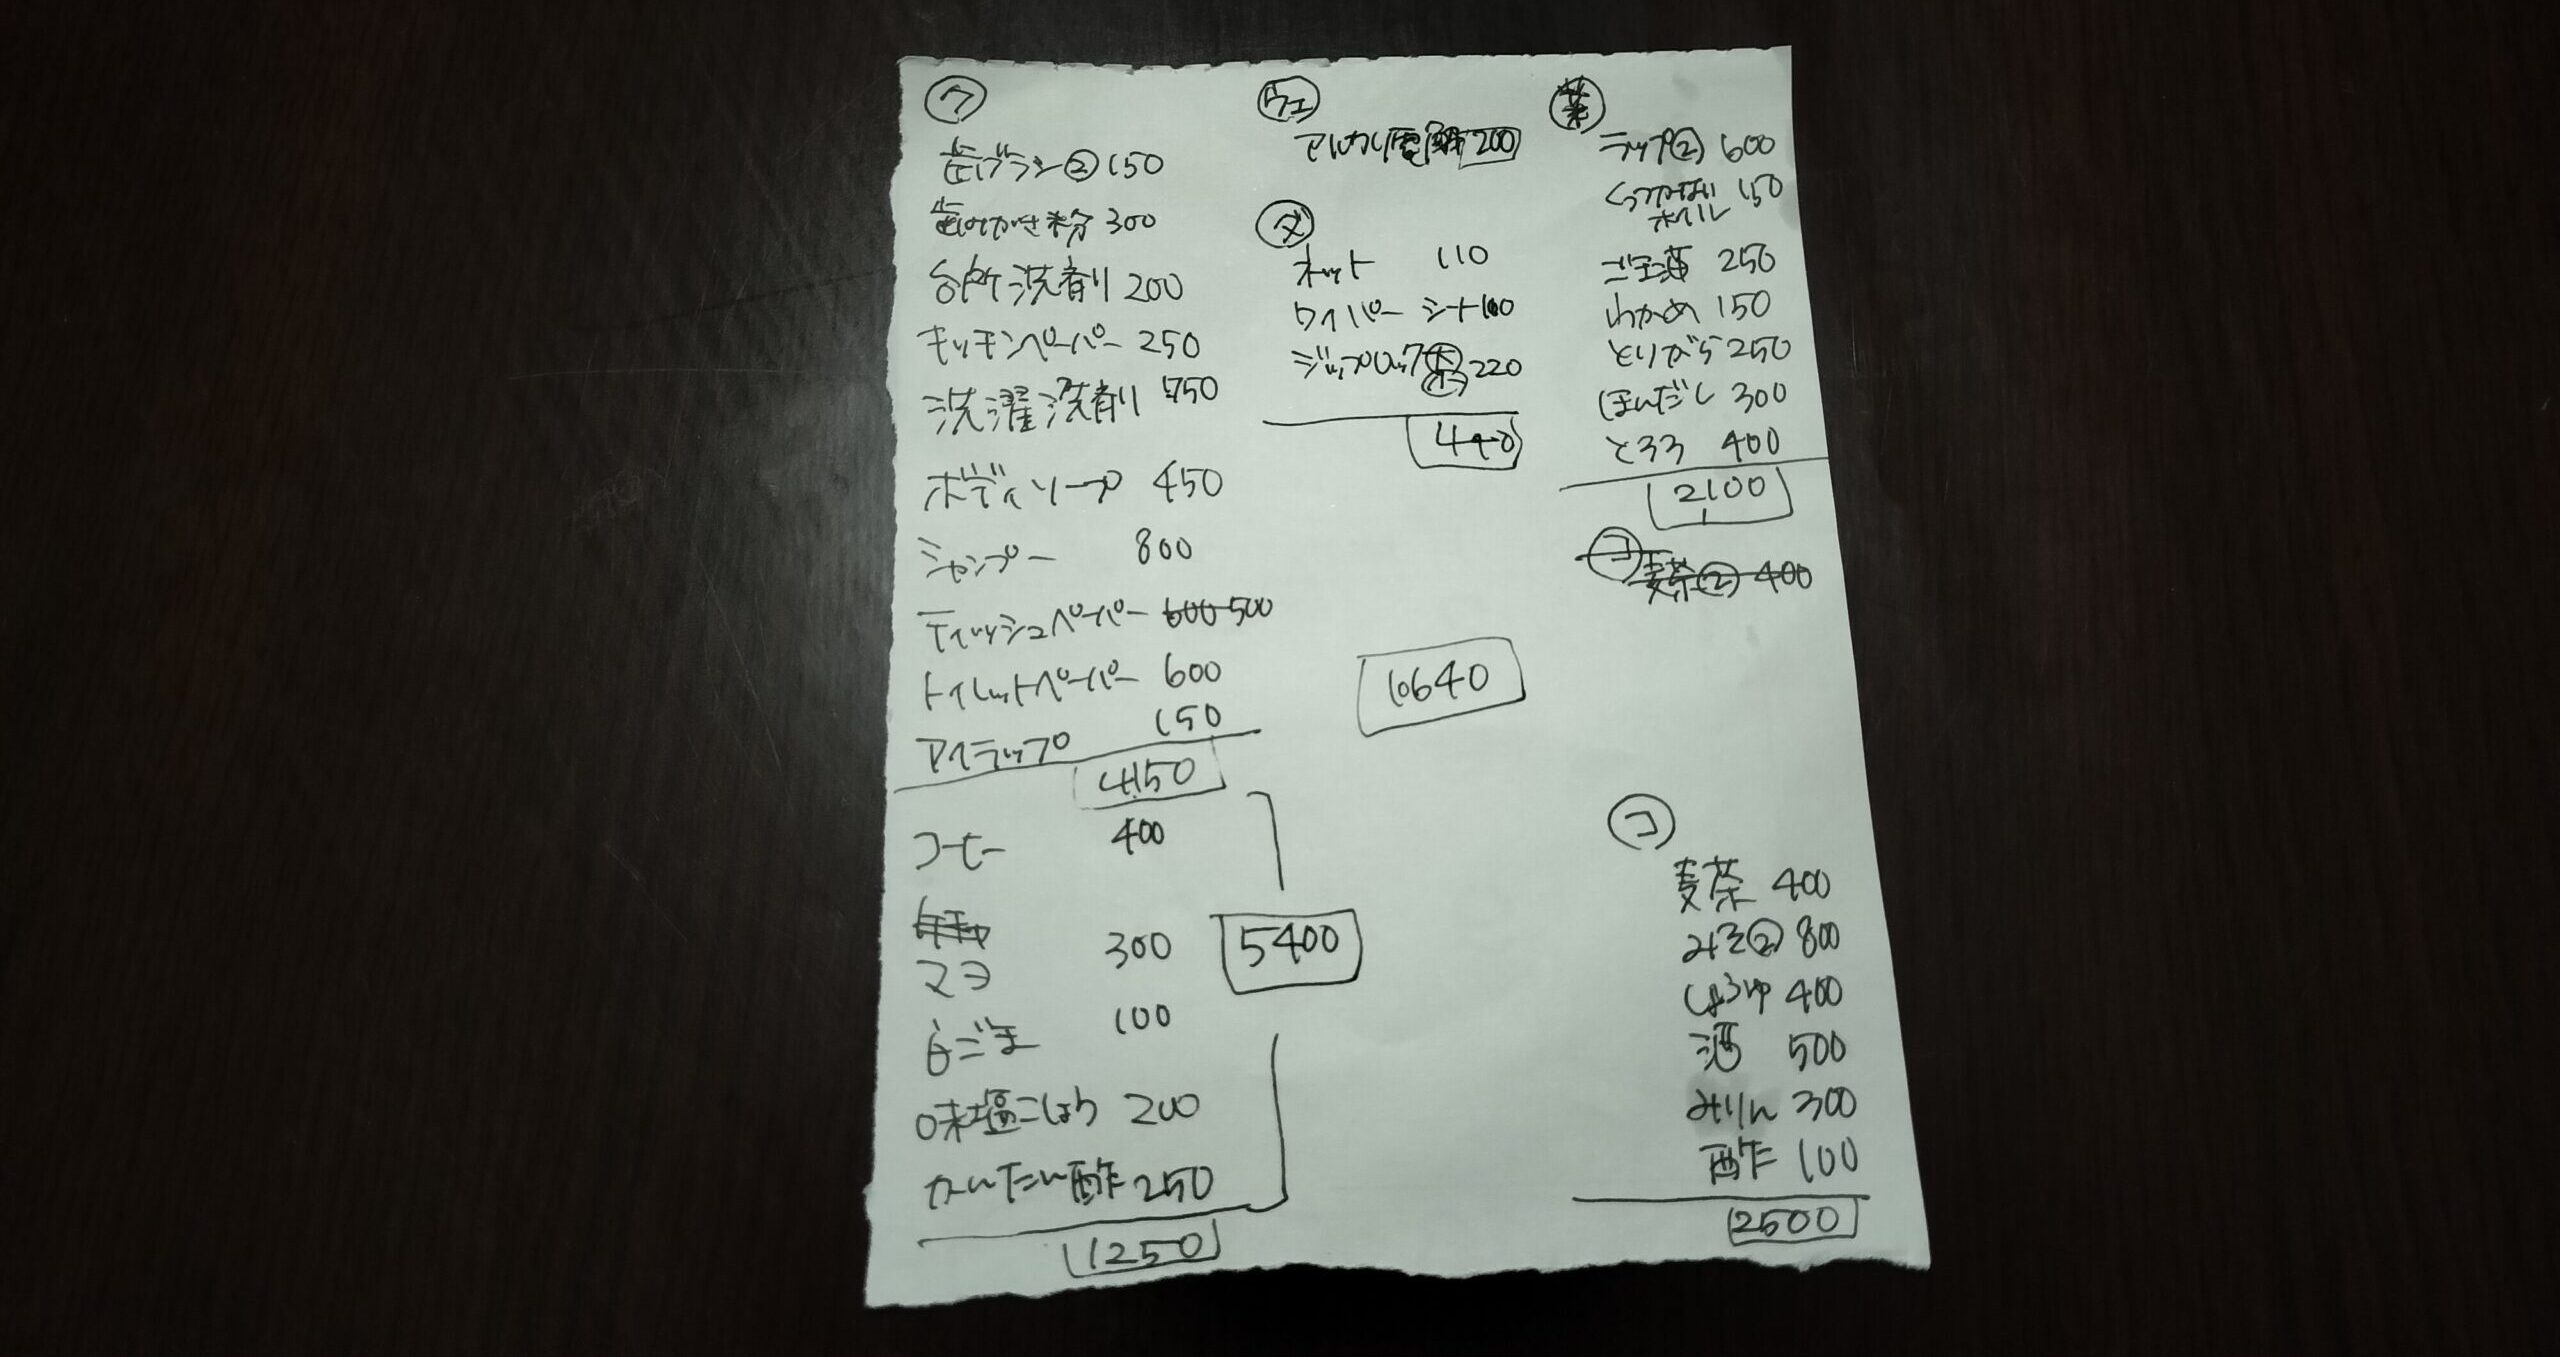 ク
歯ブラシ② 150
歯みがき粉 300
台所洗剤 200
キッチンペーパー 250
洗濯洗剤 750
ボディソープ 450
シャンプー 800
ティッシュペーパー 600 500
トイレットペーパー 600
アイラップ 150
4150
コーヒー 400
マヨ 300
白ごま 100
味塩こしょう 200
かんたん酢 250
1250
5400
ウエ
アルカリ電解 200
ダ
ネット 110
ワイパーシート 100
ジップロック 大 小 220
440
10640
業
ラップ② 600
くっつかない 150
ホイル
ごま油 250
わかめ 150
とりがら 250
ほんだし 300
とろろ 400
2100
コ
麦茶② 400
コ
麦茶 400
みそ② 800
しょうゆ 400
酒 500
みりん 300
酢 100
2500